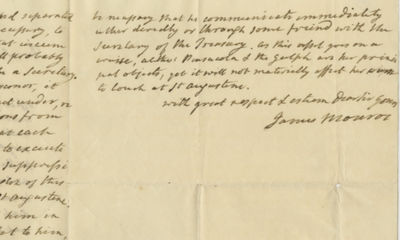 nd separated
ccessary, to
at concern
ll probably
n a Secretary.
vernor, at
ed under, or
ons from
at each
to execute
suppressi
tion of this
St Augustine.
him in
let to him,
be necessary that he communicate immediately
either directly or through some friend with the
Secretary of the Treasury. As this vessel goes on a
cruise, altho' Pensacola & the Gulph are her princi
pal objects, yet it will not materially affect her cruise
to touch at St Augustine.
with great respect & esteem Dear Sir yours
James Monroe